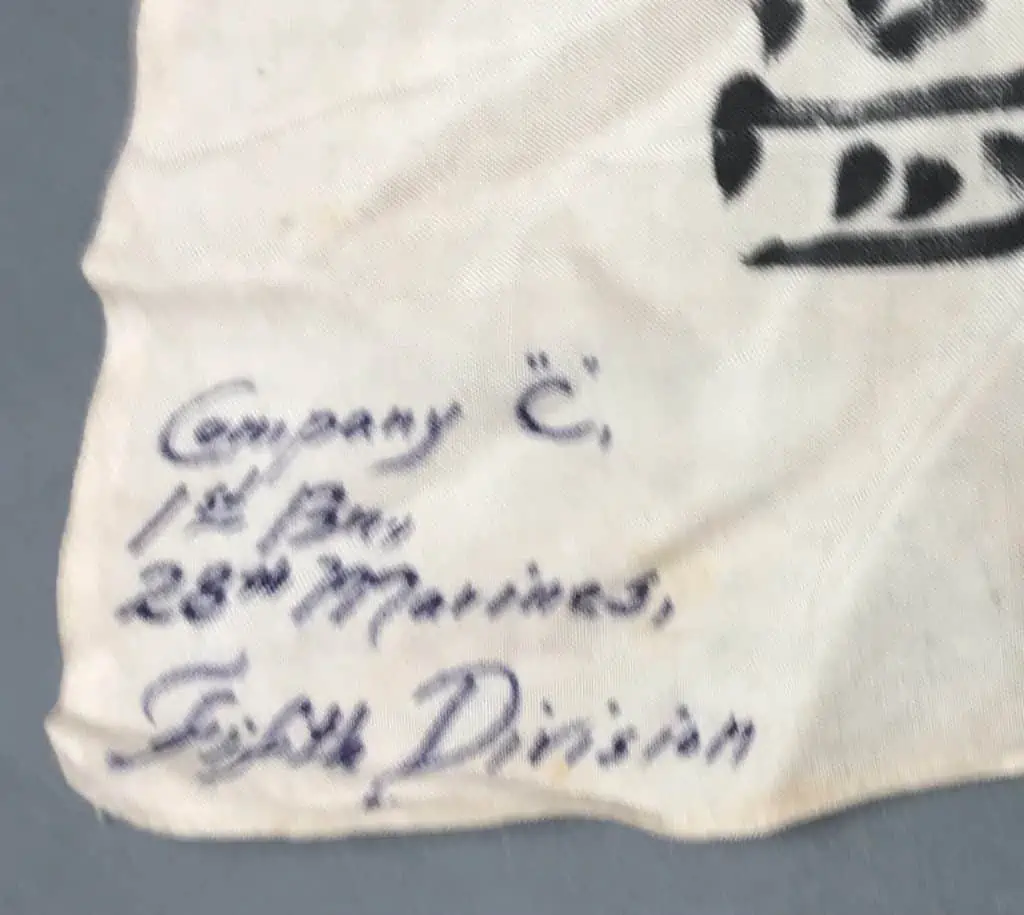 Company "C",
1st Bn,
28th Marines,
Fifth Division